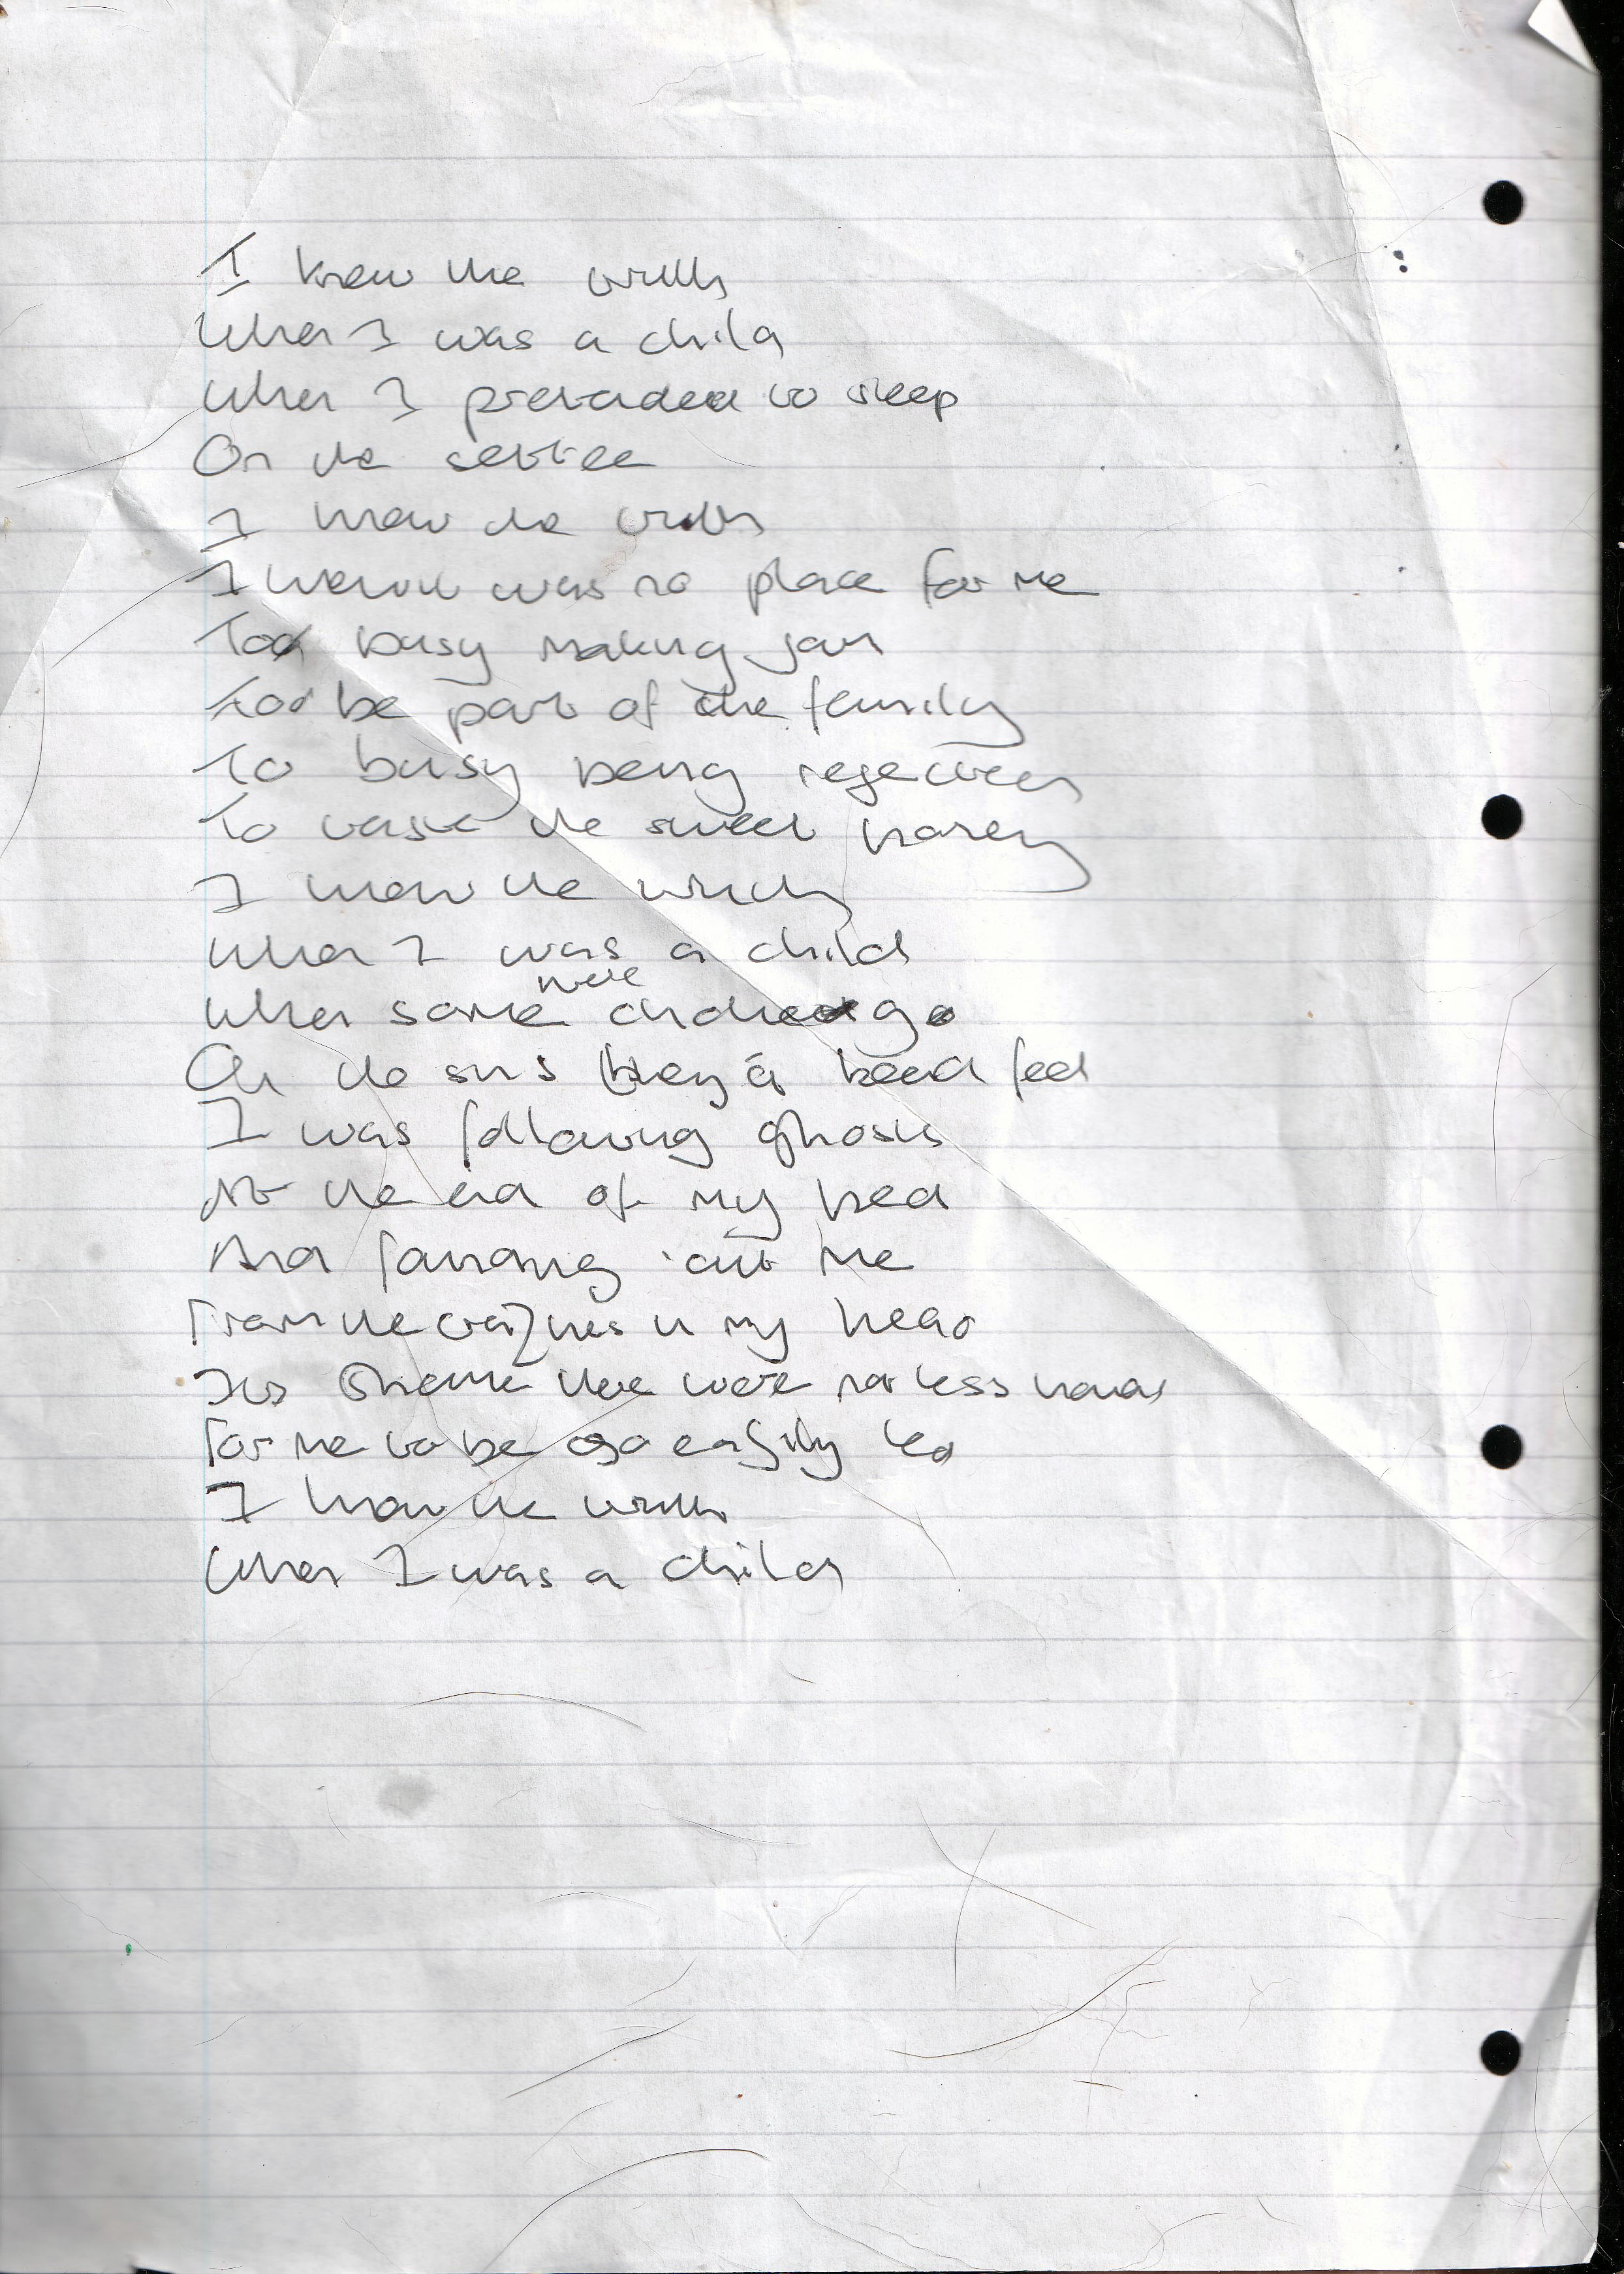 I knew the truth
When I was a child
When I pretended to sleep
On the settee
I knew the truth
I knew was no place for me
Too busy making jam
Too be part of the family
To busy being rejected
To taste the sweet honey
I knew the truth
When I was a child
When some were
On the sins they'd been fed
I was following ghosts
At the end of my bed
And out me
From the craziness in my head
Its shame there were no less
For me to be so easily led
I know the truth
When I was a child